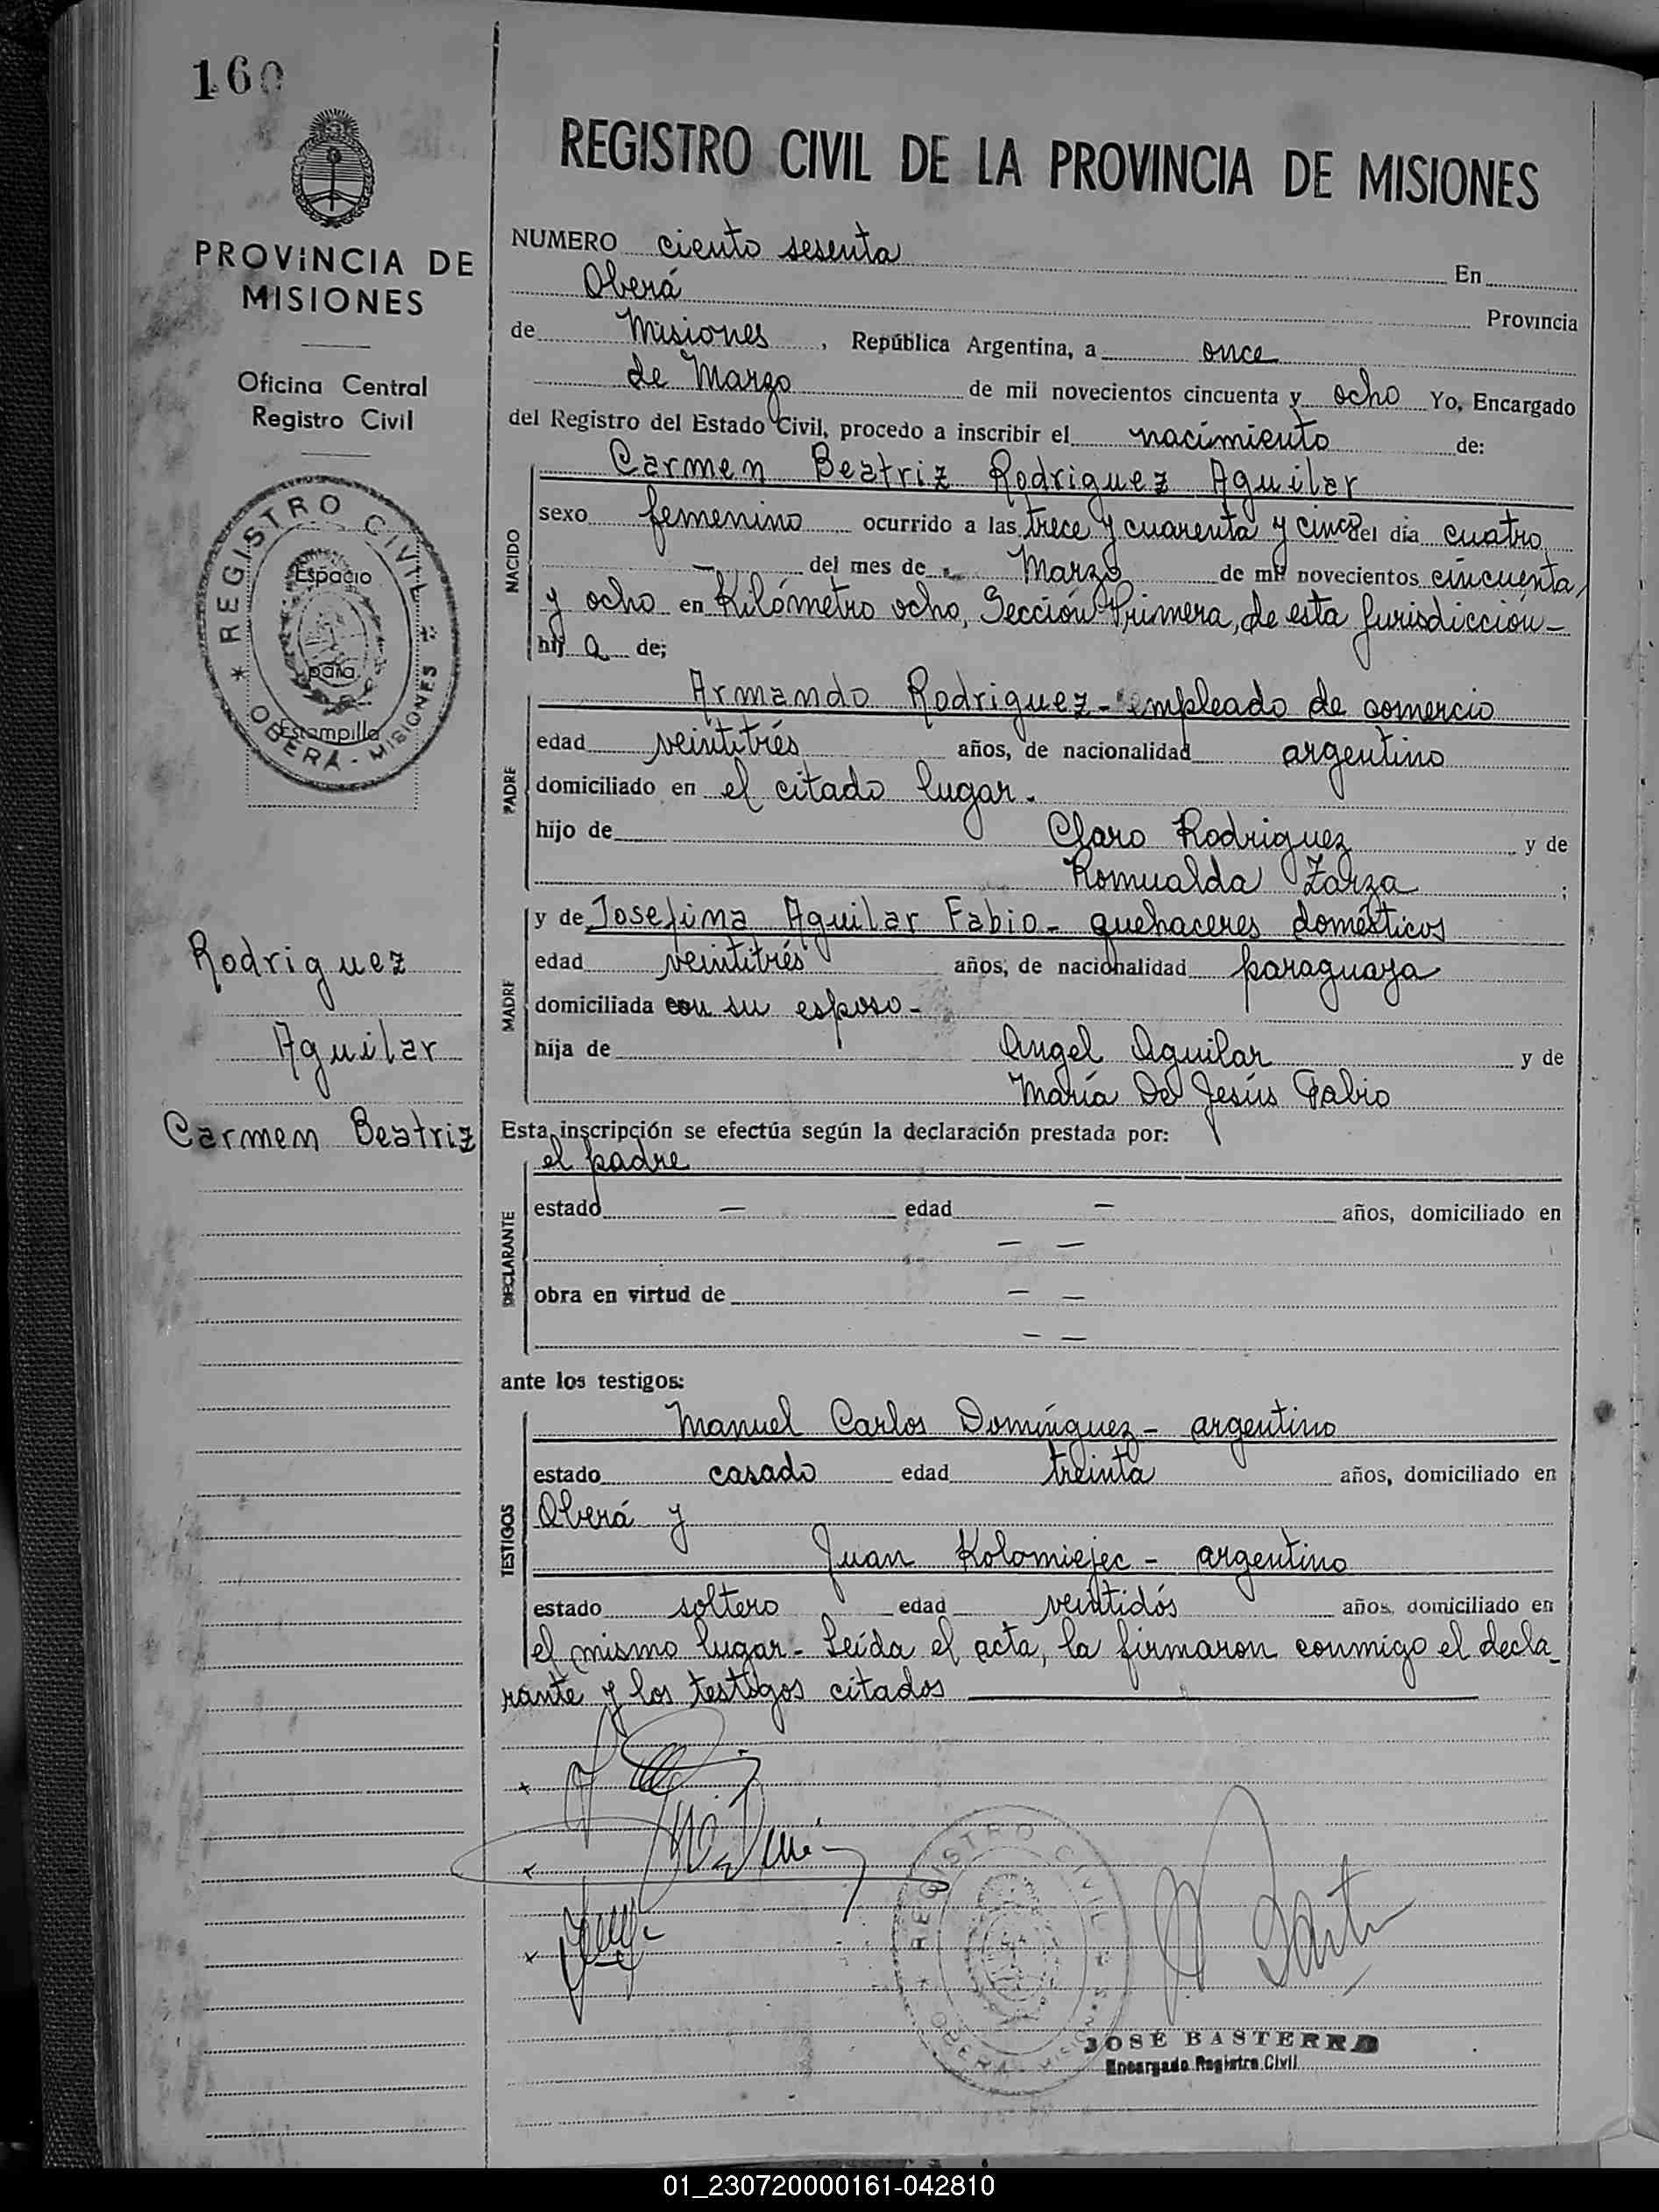 160
PROVINCIA DE
MISIONES
Oficina Central
Registro Civil
* REGISTRO CIVIL *
OBERÁ - MISIONES
Espacio
para
Estampilla
Rodriguez
Aguilar
Carmen Beatriz
REGISTRO CIVIL DE LA PROVINCIA DE MISIONES
NUMERO ciento sesenta En
Oberá Provincia
de Misiones, República Argentina, a once
de Marzo de mil novecientos cincuenta y ocho Yo, Encargado
del Registro del Estado Civil, procedo a inscribir el nacimiento de:
NACIDO
Carmen Beatriz Rodriguez Aguilar
sexo femenino ocurrido a las trece y cuarenta y cinco del día cuatro
— del mes de Marzo de mil novecientos cincuenta
y ocho en Kilómetro ocho, Sección Primera, de esta Jurisdicción —
hij a de;
PADRE
Armando Rodriguez - empleado de comercio
edad veintitrés años, de nacionalidad argentino
domiciliado en el citado lugar.
hijo de Claro Rodriguez y de
Romualda Zarza ;
MADRE
y de Josefina Aguilar Fabio - quehaceres domésticos
edad veintitrés años, de nacionalidad paraguaya
domiciliada con su esposo -
hija de Angel Aguilar y de
María De Jesús Fabio
Esta inscripción se efectúa según la declaración prestada por:
DECLARANTE
el padre
estado — edad — años, domiciliado en
— —
obra en virtud de — —
— —
ante los testigos:
TESTIGOS
Manuel Carlos Domínguez - argentino
estado casado edad treinta años, domiciliado en
Oberá y
Juan Kolomiejec - argentino
estado soltero edad veintidós años, domiciliado en
el mismo lugar - Leída el acta, la firmaron conmigo el decla-
rante y los testigos citados
REGISTRO CIVIL
OBERÁ - MISIONES
JOSÉ BASTERRA
Encargado Registro Civil
01_230720000161-042810